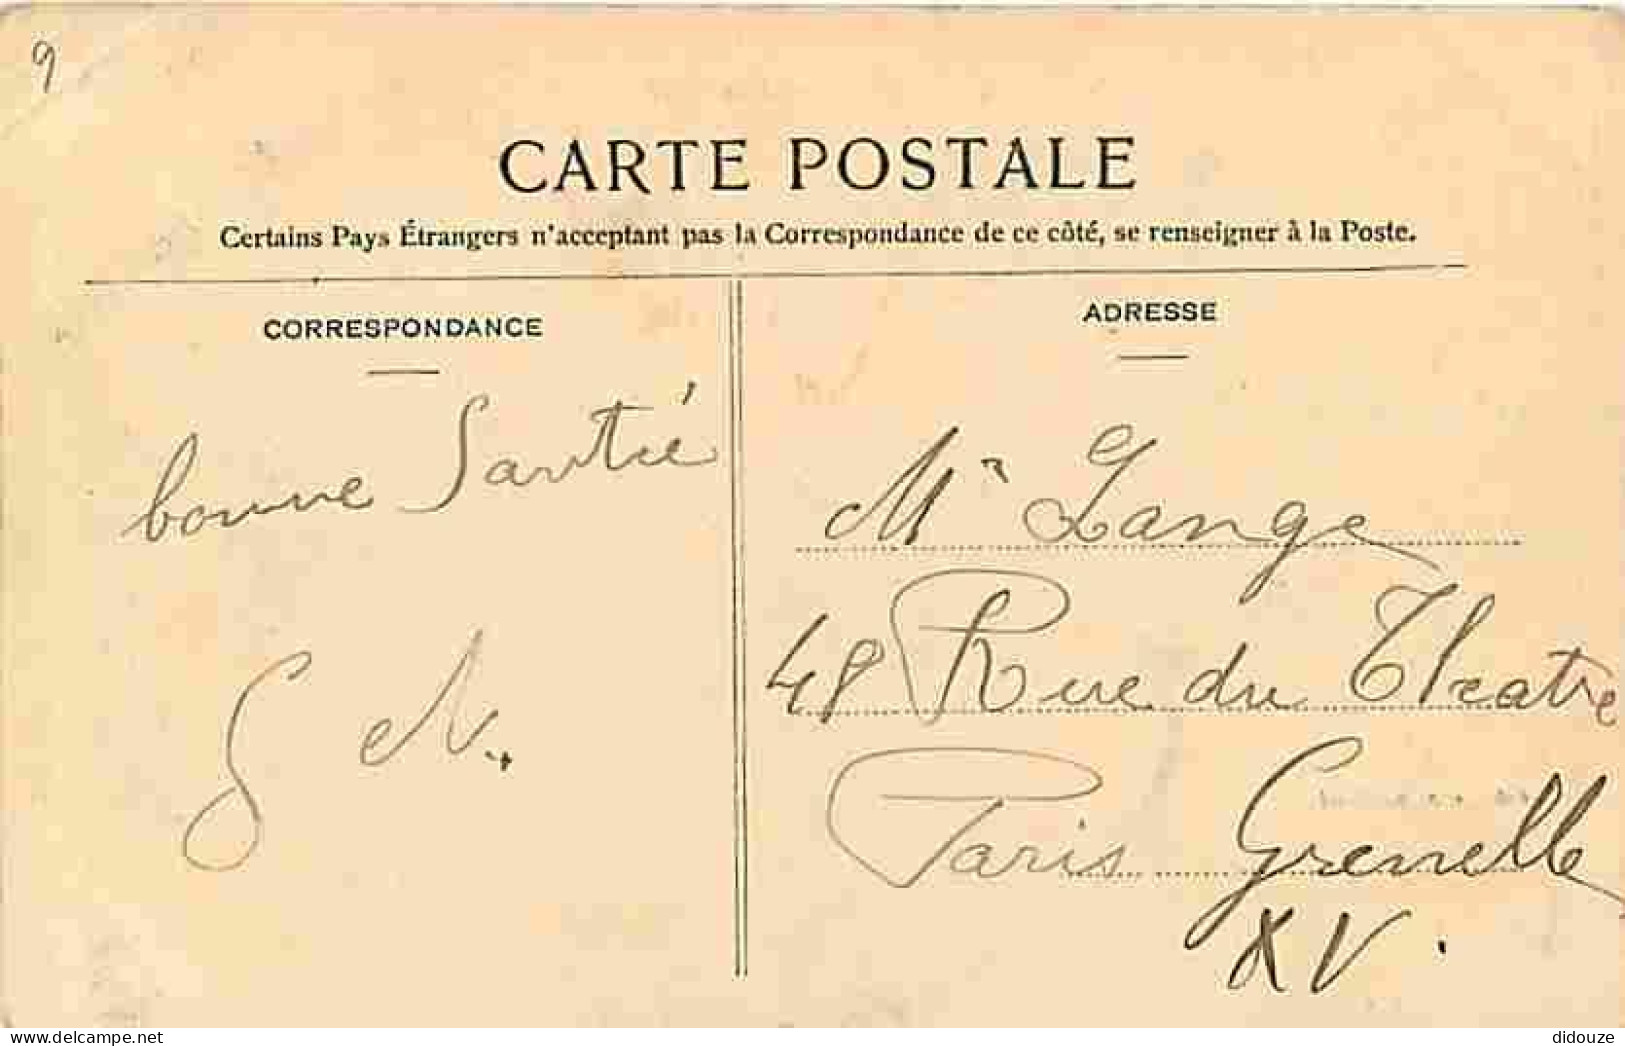 9
CARTE POSTALE
Certains Pays Étrangers n'acceptent pas la Correspondance de ce côté, se renseigner à la Poste.
CORRESPONDANCE
bonne Santié
S N.
ADRESSE
Mr Lange
48 Rue du Theatre
Paris Grenelle
XV.
www.delcampe.net
didouze